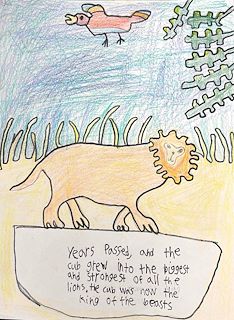 Years Passed, and the
cub grew into the biggest
and strongest of all the
lions, the cub was now the
king of the beasts